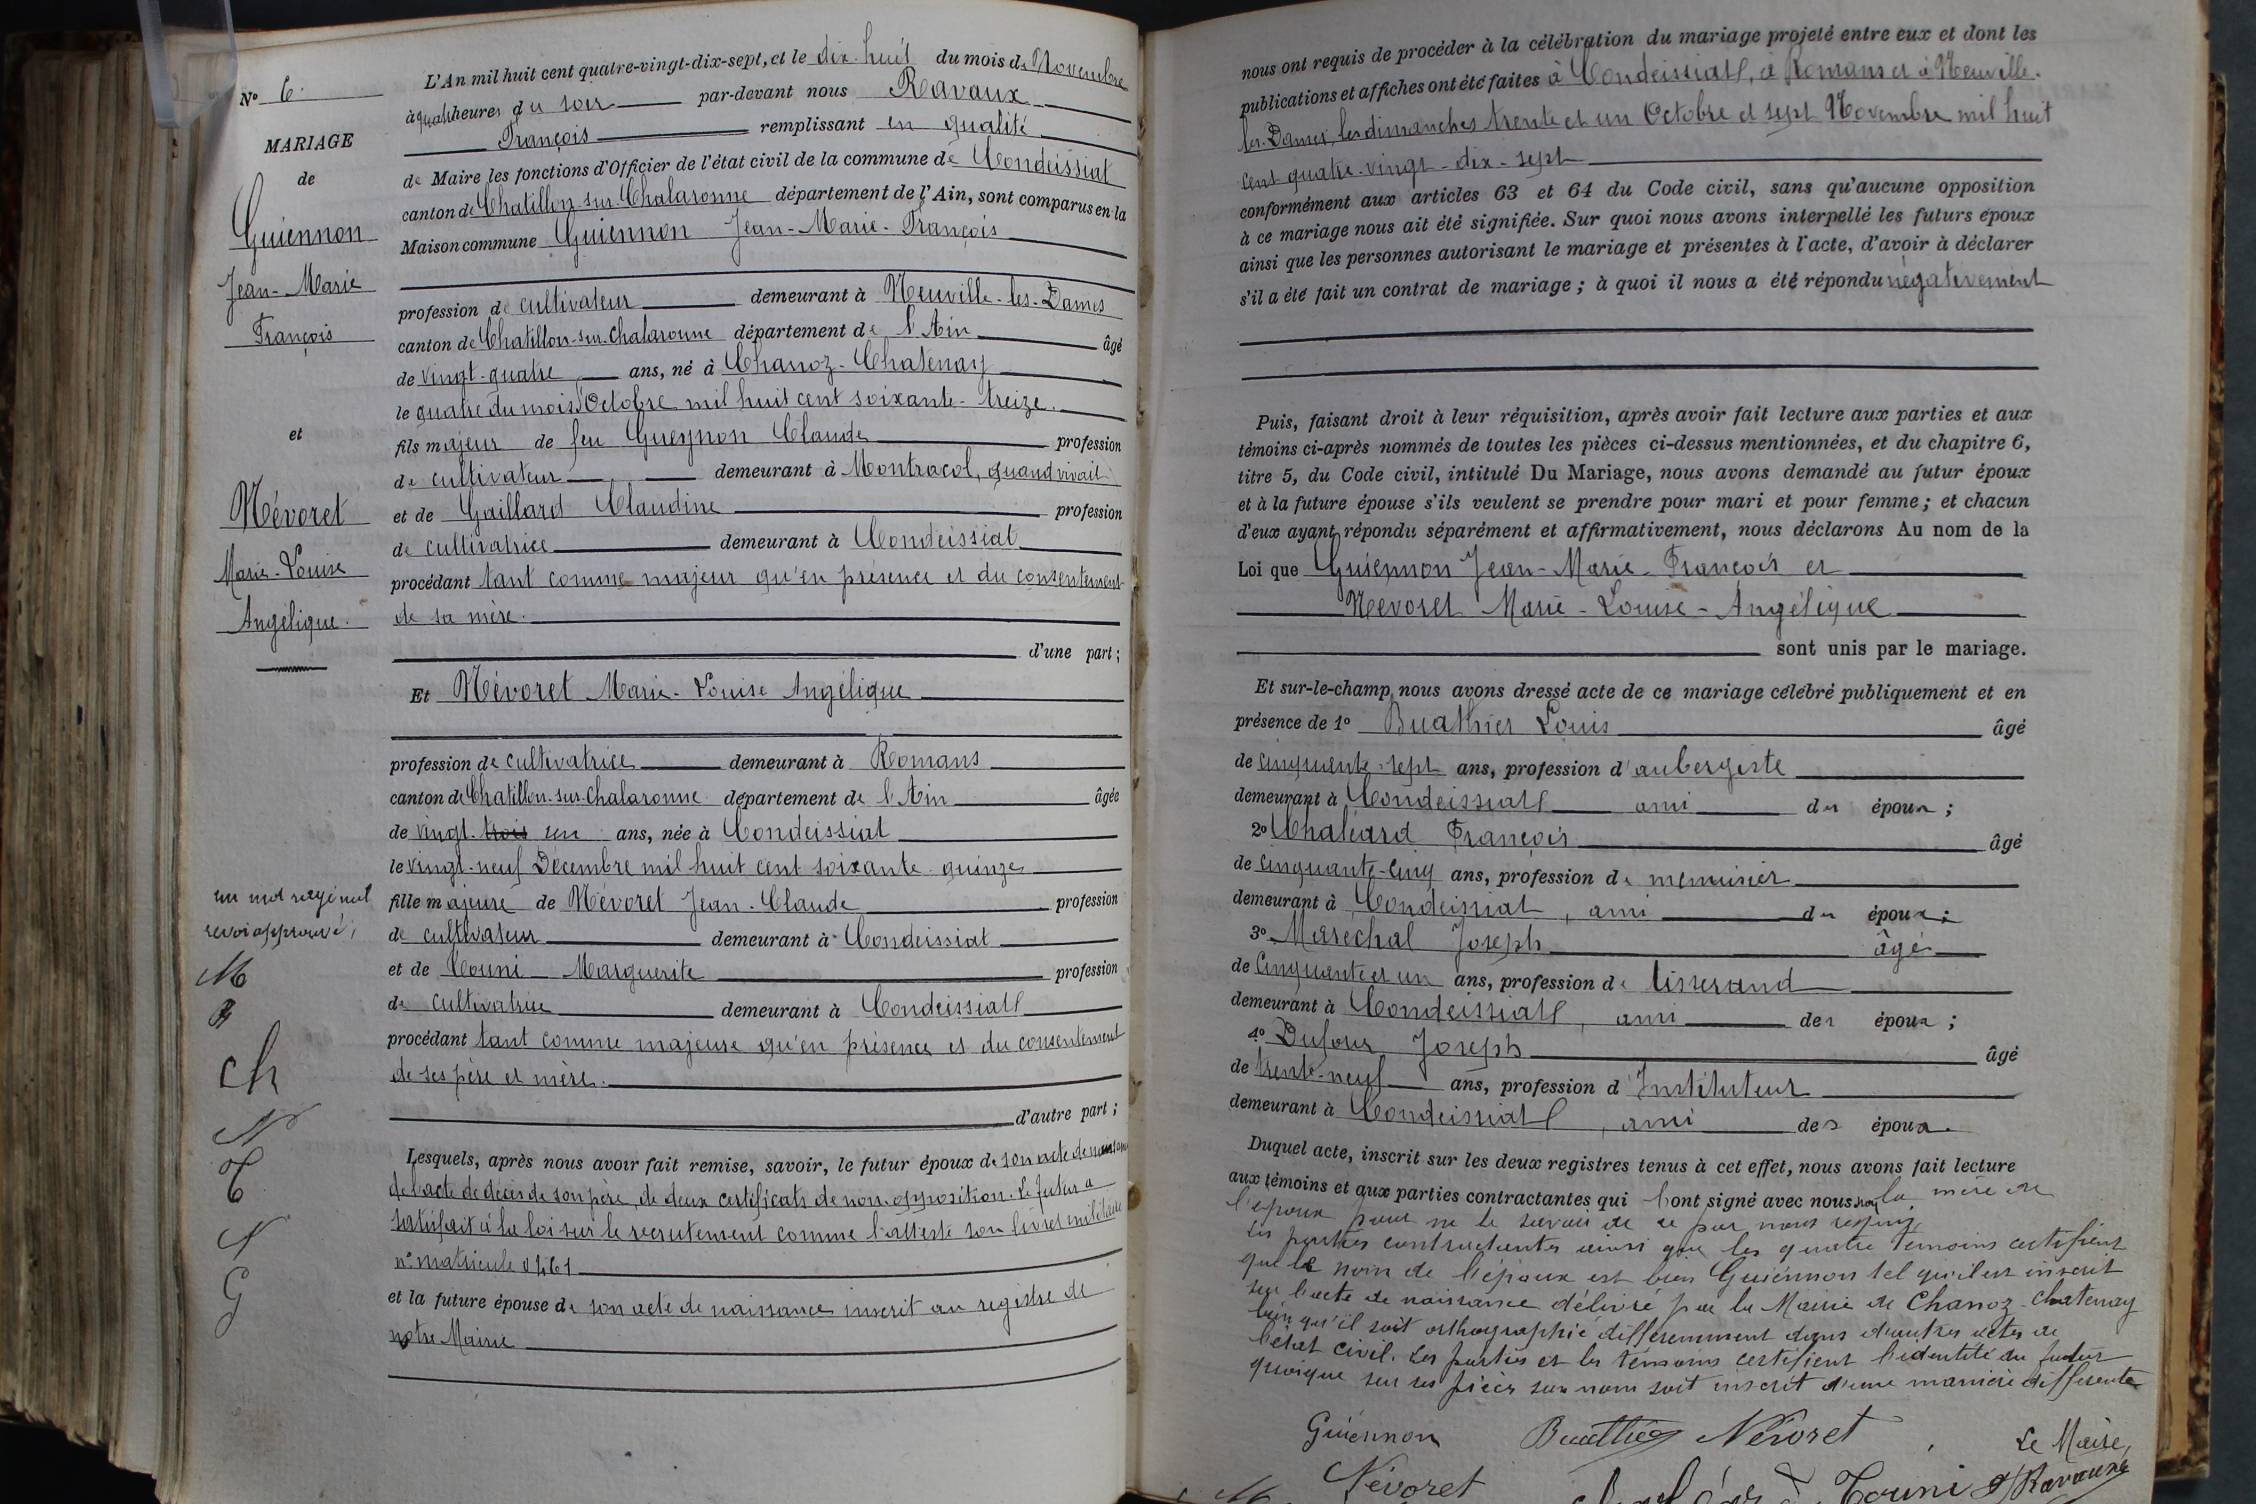 N° 6.
MARIAGE
de
Guiennon
Jean-Marie
François
et
Névoret
Marie-Louise
Angélique.
un mot rayé nul
renvoi approuvé;
M
R
Ch
N
T
N
G
L'An mil huit cent quatre-vingt-dix-sept, et le dix-huit du mois de Novembre
à quatre heures du soir par-devant nous Ravaux
François remplissant en qualité
de Maire les fonctions d'Officier de l'état civil de la commune de Condeissiat
canton de Chatillon-sur-Chalaronne département de l'Ain, sont comparus en la
Maison commune Guiennon Jean-Marie-François
profession de cultivateur demeurant à Neuville-les-Dames
canton de Chatillon-sur-Chalaronne département de l'Ain âgé
de vingt-quatre ans, né à Chanoz-Chatenay
le quatre du mois Octobre mil huit cent soixante-treize.
fils majeur de feu Gueynon Claude profession
de cultivateur demeurant à Montracol, quand vivait
et de Gaillard Claudine profession
de cultivatrice demeurant à Condeissiat
procédant tant comme majeur qu'en présence et du consentement
de sa mère.
d'une part;
Et Névoret Marie-Louise Angélique
profession de cultivatrice demeurant à Romans
canton de Chatillon-sur-Chalaronne département de l'Ain âgée
de vingt-trois un ans, née à Condeissiat
le vingt-neuf Décembre mil huit cent soixante quinze
fille majeure de Névoret Jean-Claude profession
de cultivateur demeurant à Condeissiat
et de Touni Marguerite profession
de cultivatrice demeurant à Condeissiat
procédant tant comme majeure qu'en présence et du consentement
de ses père et mère.
d'autre part;
Lesquels, après nous avoir fait remise, savoir, le futur époux de son acte de naissance
de l'acte de décès de son père, de deux certificats de non-opposition. Le futur a
satisfait à la loi sur le recrutement comme l'atteste son livret militaire
n° matricule 0461
et la future épouse de son acte de naissance inscrit au registre de
notre Mairie
nous ont requis de procéder à la célébration du mariage projeté entre eux et dont les
publications et affiches ont été faites à Condeissiat, à Romans et à Neuville-
les-Dames, les dimanches trente et un Octobre et sept Novembre mil huit
cent quatre-vingt-dix-sept
conformément aux articles 63 et 64 du Code civil, sans qu'aucune opposition
à ce mariage nous ait été signifiée. Sur quoi nous avons interpellé les futurs époux
ainsi que les personnes autorisant le mariage et présentes à l'acte, d'avoir à déclarer
s'il a été fait un contrat de mariage; à quoi il nous a été répondu négativement
Puis, faisant droit à leur réquisition, après avoir fait lecture aux parties et aux
témoins ci-après nommés de toutes les pièces ci-dessus mentionnées, et du chapitre 6,
titre 5, du Code civil, intitulé Du Mariage, nous avons demandé au futur époux
et à la future épouse s'ils veulent se prendre pour mari et pour femme; et chacun
d'eux ayant répondu séparément et affirmativement, nous déclarons Au nom de la
Loi que Guiennon Jean-Marie-François et
Névoret Marie-Louise-Angélique
sont unis par le mariage.
Et sur-le-champ nous avons dressé acte de ce mariage célébré publiquement et en
présence de 1° Buathier Louis âgé
de cinquante-sept ans, profession d'aubergiste
demeurant à Condeissiat ami du époux;
2° Chaléard François âgé
de cinquante-cinq ans, profession de menuisier
demeurant à Condeissiat, ami du époux;
3° Maréchal Joseph âgé
de Cinquante et un ans, profession de tisserand
demeurant à Condeissiat, ami des époux;
4° Dufour Joseph âgé
de trente-neuf ans, profession d'Instituteur
demeurant à Condeissiat, ami des époux.
Duquel acte, inscrit sur les deux registres tenus à cet effet, nous avons fait lecture
aux témoins et aux parties contractantes qui l'ont signé avec nous, non la mère de
l'époux pour ne le savoir de ce par nous requise
Les parties contractantes ainsi que les quatre témoins certifient
que le nom de l'époux est bien Guiénnon tel qu'il est inscrit
sur l'acte de naissance délivré par la Mairie de Chanoz-Chatenay
bien qu'il soit orthographié différemment dans d'autres actes de
l'état civil. Les parties et les témoins certifient l'identité du futur
quoique sur ses pièces son nom soit inscrit d'une manière différente
Guiénnon Buathier Névoret Le Maire,
Névoret Touni F Ravaux